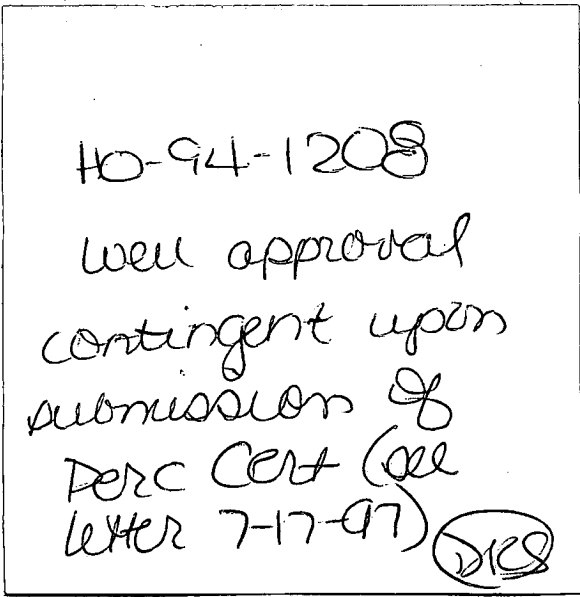 HO-94-1208
well approval
contingent upon
submission of
Perc Cert (see
letter 7-17-97)
DKS